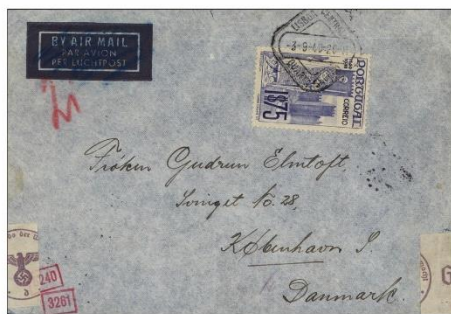 BY AIR MAIL
PAR AVION
PER LUCHTPOST
-3-9-40-
PORTUGAL
CORREIO
1$75
Frøken Gudrun Elmtoft.
Svinget No. 28,
København S.
Danmark.
240
3261
G